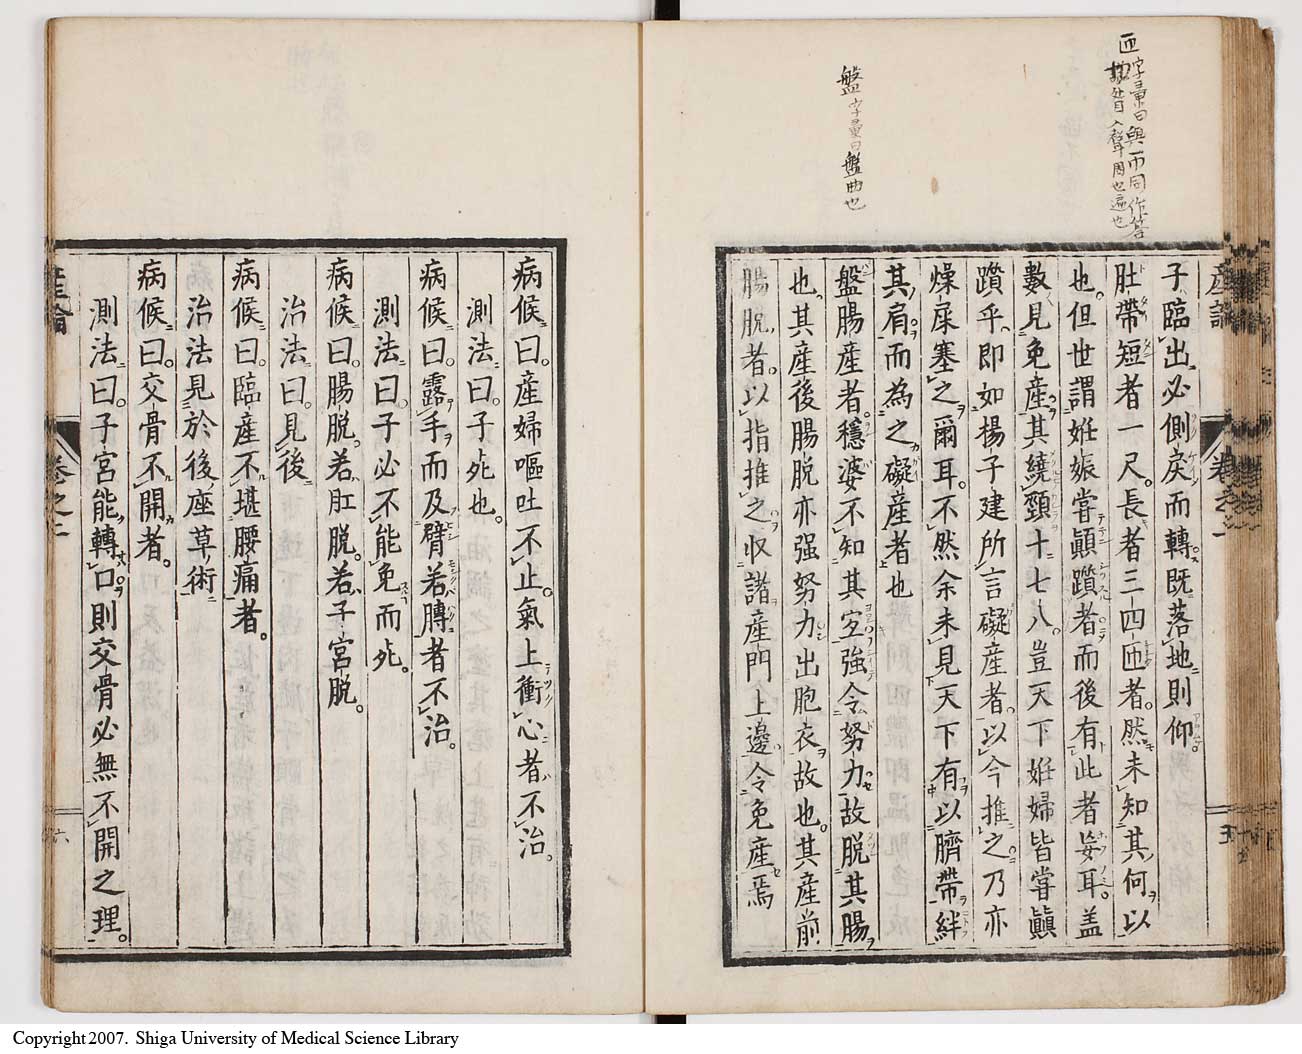 匝字彙曰與帀同作答
切音入聲周也遍也
盤字彙曰盤曲也
産論
卷之二
五
子臨出必側戾而轉既落地則仰
肚帶短者一尺長者三四匝者然未知其何以
也但世謂姙娠嘗顛躓者而後有此者妄耳蓋
數見免產其繞頸十七八豈天下姙婦皆嘗顛
躓乎即如楊子建所言礙產者以今推之乃亦
燥屎塞之爾耳不然余未見天下有以臍帶絆
其肩而為之礙產者也
盤腸產者穩婆不知其宐強令努力故脫其腸
也其產後腸脫亦强努力出胞衣故也其產前
腸脫者以指推之收諸產門上邊令免產焉
病候曰產婦嘔吐不止氣上衝心者不治
測法曰子死也
病候曰露手而及臂若膊者不治
測法曰子必不能免而死
病候曰腸脫若肛脫若子宮脫
治法曰見後
病候曰臨產不堪腰痛者
治法見於後座草術
病候曰交骨不開者
測法曰子宮能轉口則交骨必無不開之理
産論
卷之二
六
Copyright 2007. Shiga University of Medical Science Library